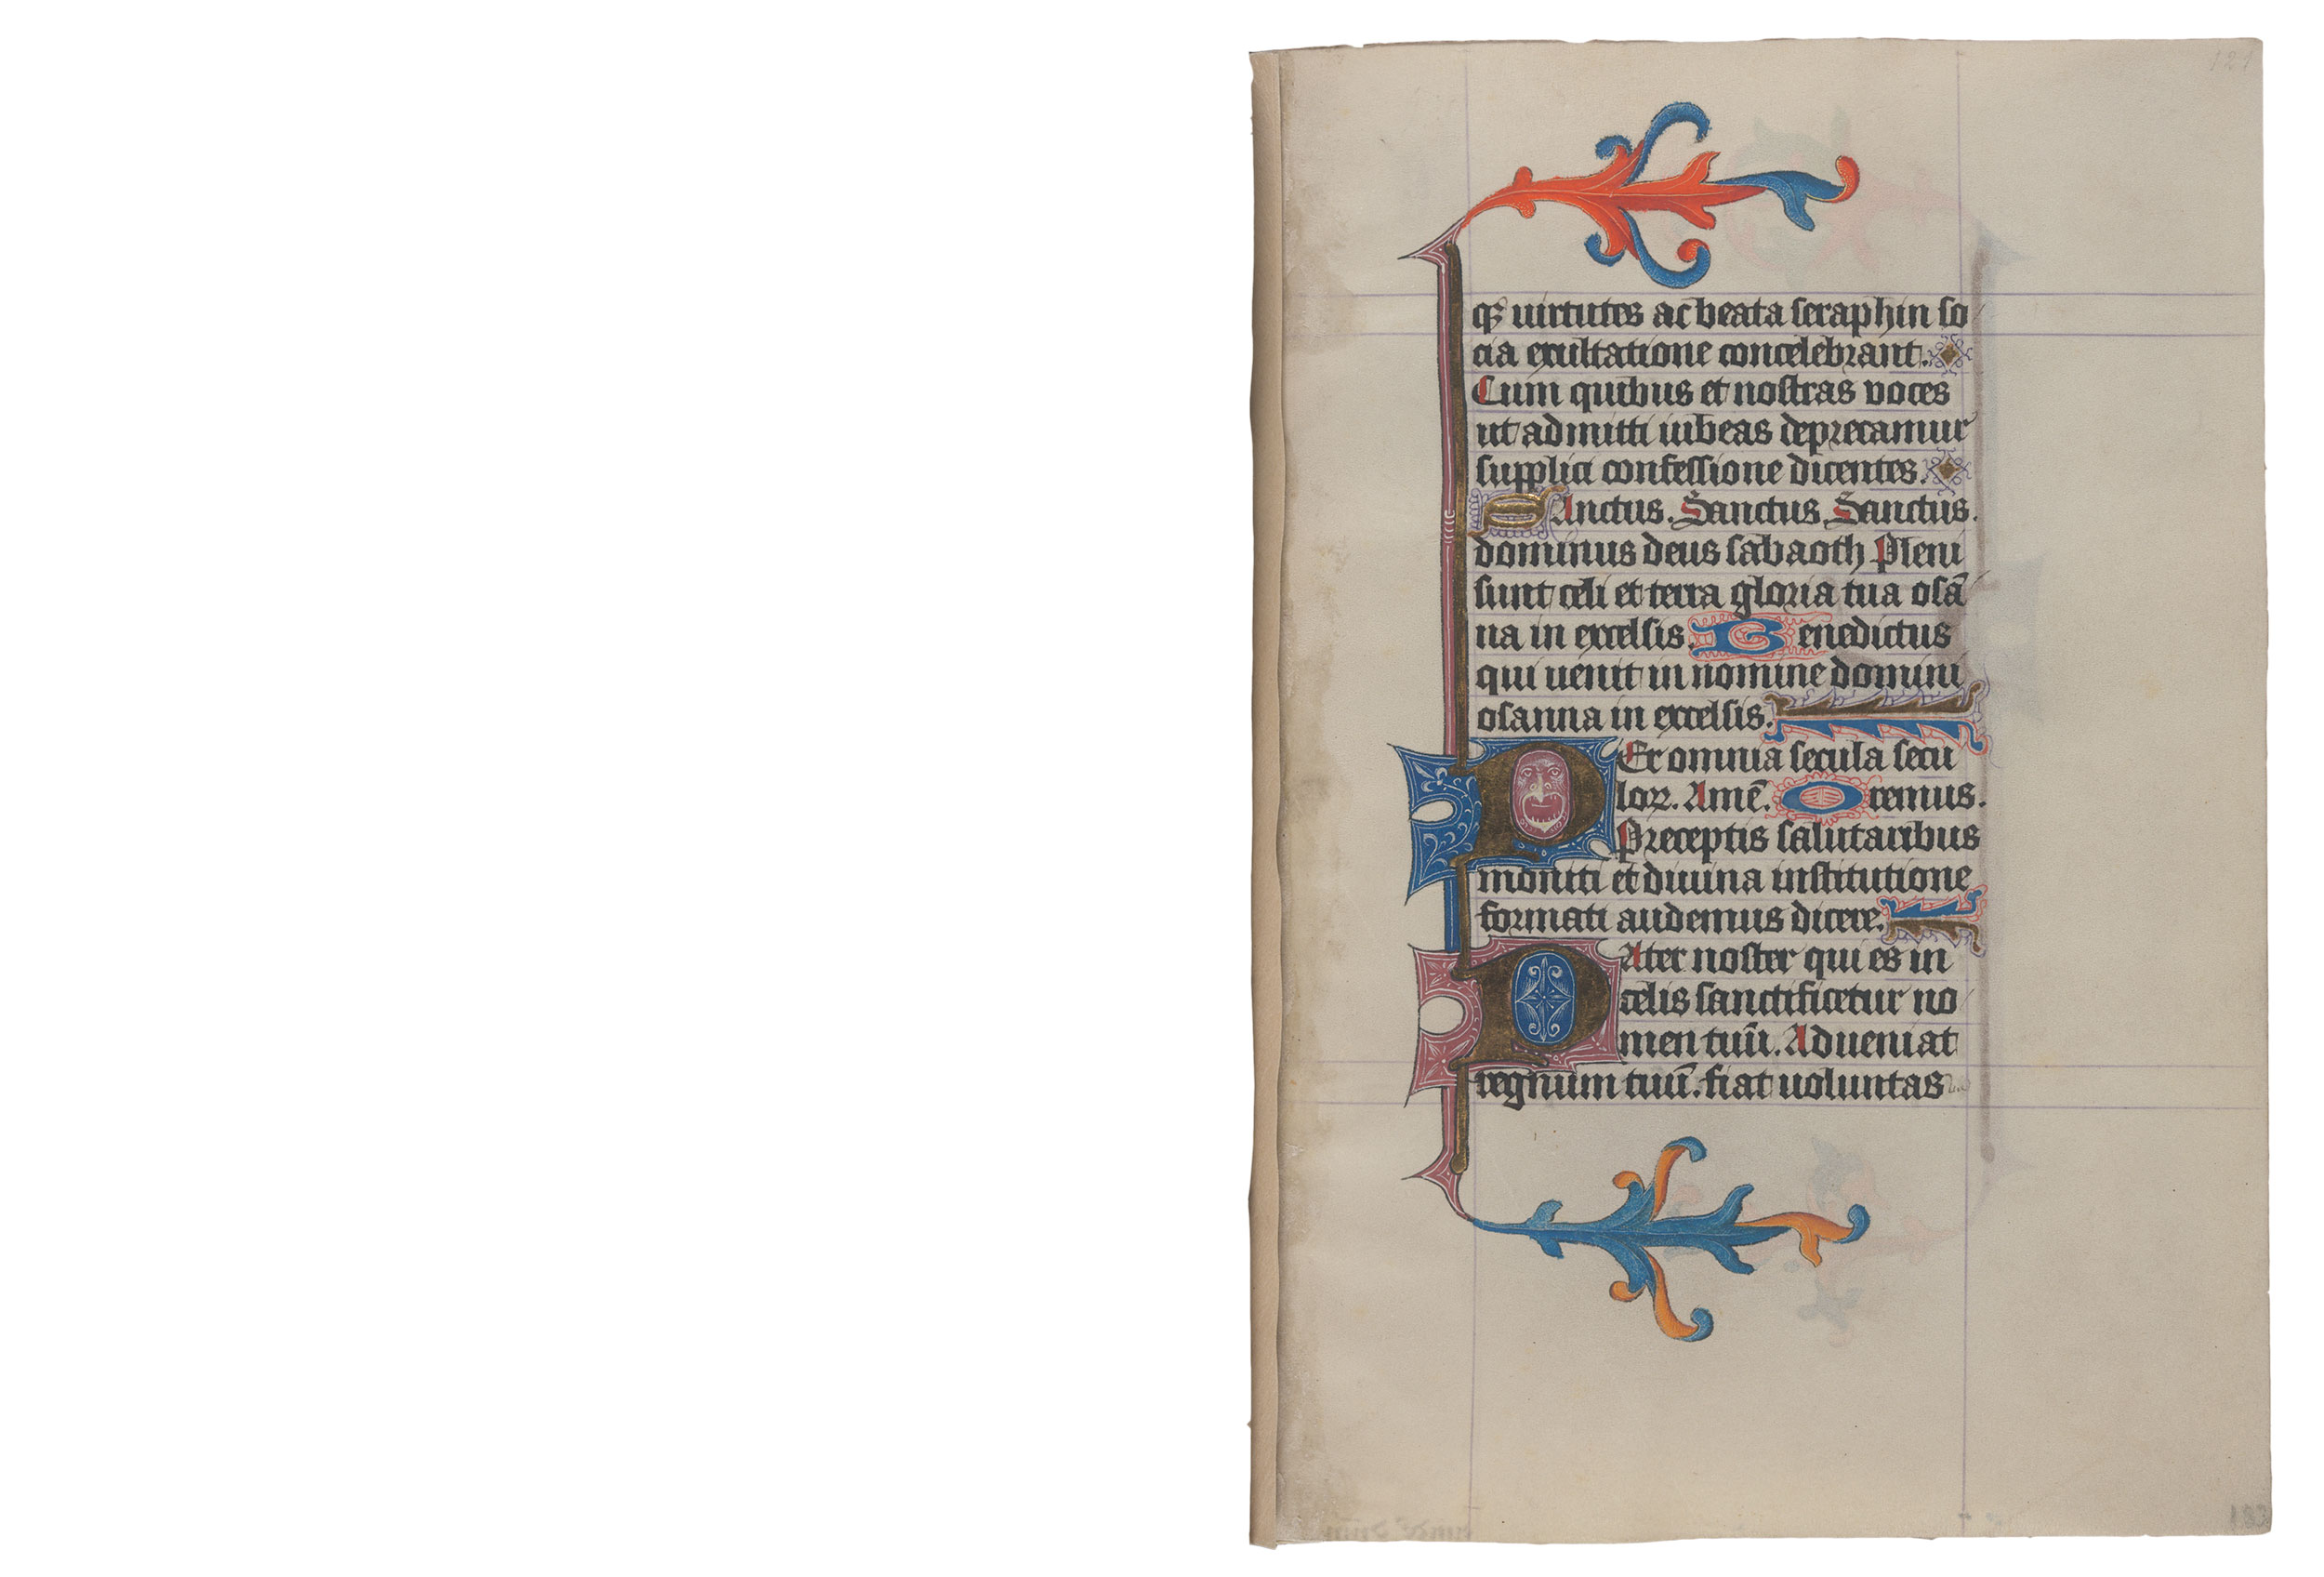 121
qꝫ uirtutes ac beata seraphin so
cia exultatione concelebrant.
Cum quibus et nostras voces
ut admitti iubeas deprecamur
supplici confessione dicentes.
SAnctus. Sanctus. Sanctus.
dominus deus sabaoth Pleni
sunt celi et terra gloria tua osā
na in excelsis. Benedictus
qui uenit in nomine domini
osanna in excelsis.
PEr omnia secula secu
loꝝ. Amē. Oremus.
Preceptis salutaribus
moniti et diuina institutione
formati audemus dicere.
PAter noster qui es in
celis sanctificetur no
men tuū. Adueniat
regnum tuū. fiat uoluntas